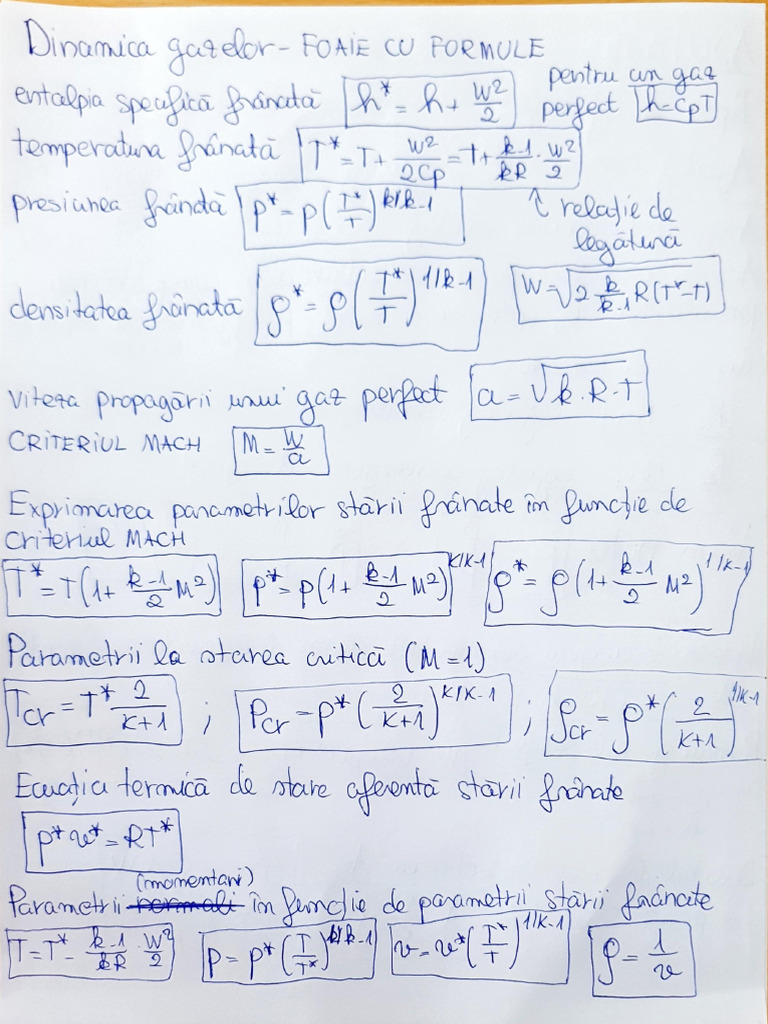 Dinamica gazelor - FOAIE CU FORMULE
entalpia specifică frânată h* = h + w²/2 pentru un gaz perfect h = CpT
temperatura frânată T* = T + w²/2Cp = T + k-1/kR · w²/2
presiunea frânată p* = p(T*/T)^k/k-1 ↑ relație de legătură
densitatea frânată ρ* = ρ(T*/T)^1/k-1 W = √2 k/k-1 R(T*-T)
viteza propagării unui gaz perfect a = √k·R·T
CRITERIUL MACH M = W/a
Exprimarea parametrilor stării frânate în funcție de
Criteriul MACH
T* = T(1 + k-1/2 M²) p* = p(1 + k-1/2 M²)^k/k-1 ρ* = ρ(1 + k-1/2 M²)^1/k-1
Parametrii la starea critică (M = 1)
Tcr = T* 2/k+1 ; Pcr = p*(2/k+1)^k/k-1 ; ρcr = ρ*(2/k+1)^1/k-1
Ecuația termică de stare aferentă stării frânate
p*v* = RT*
(momentani)
Parametrii normali în funcție de parametrii stării frânate
T = T* - k-1/kR · w²/2 p = p*(T/T*)^k/k-1 v = v*(T*/T)^1/k-1 ρ = 1/v